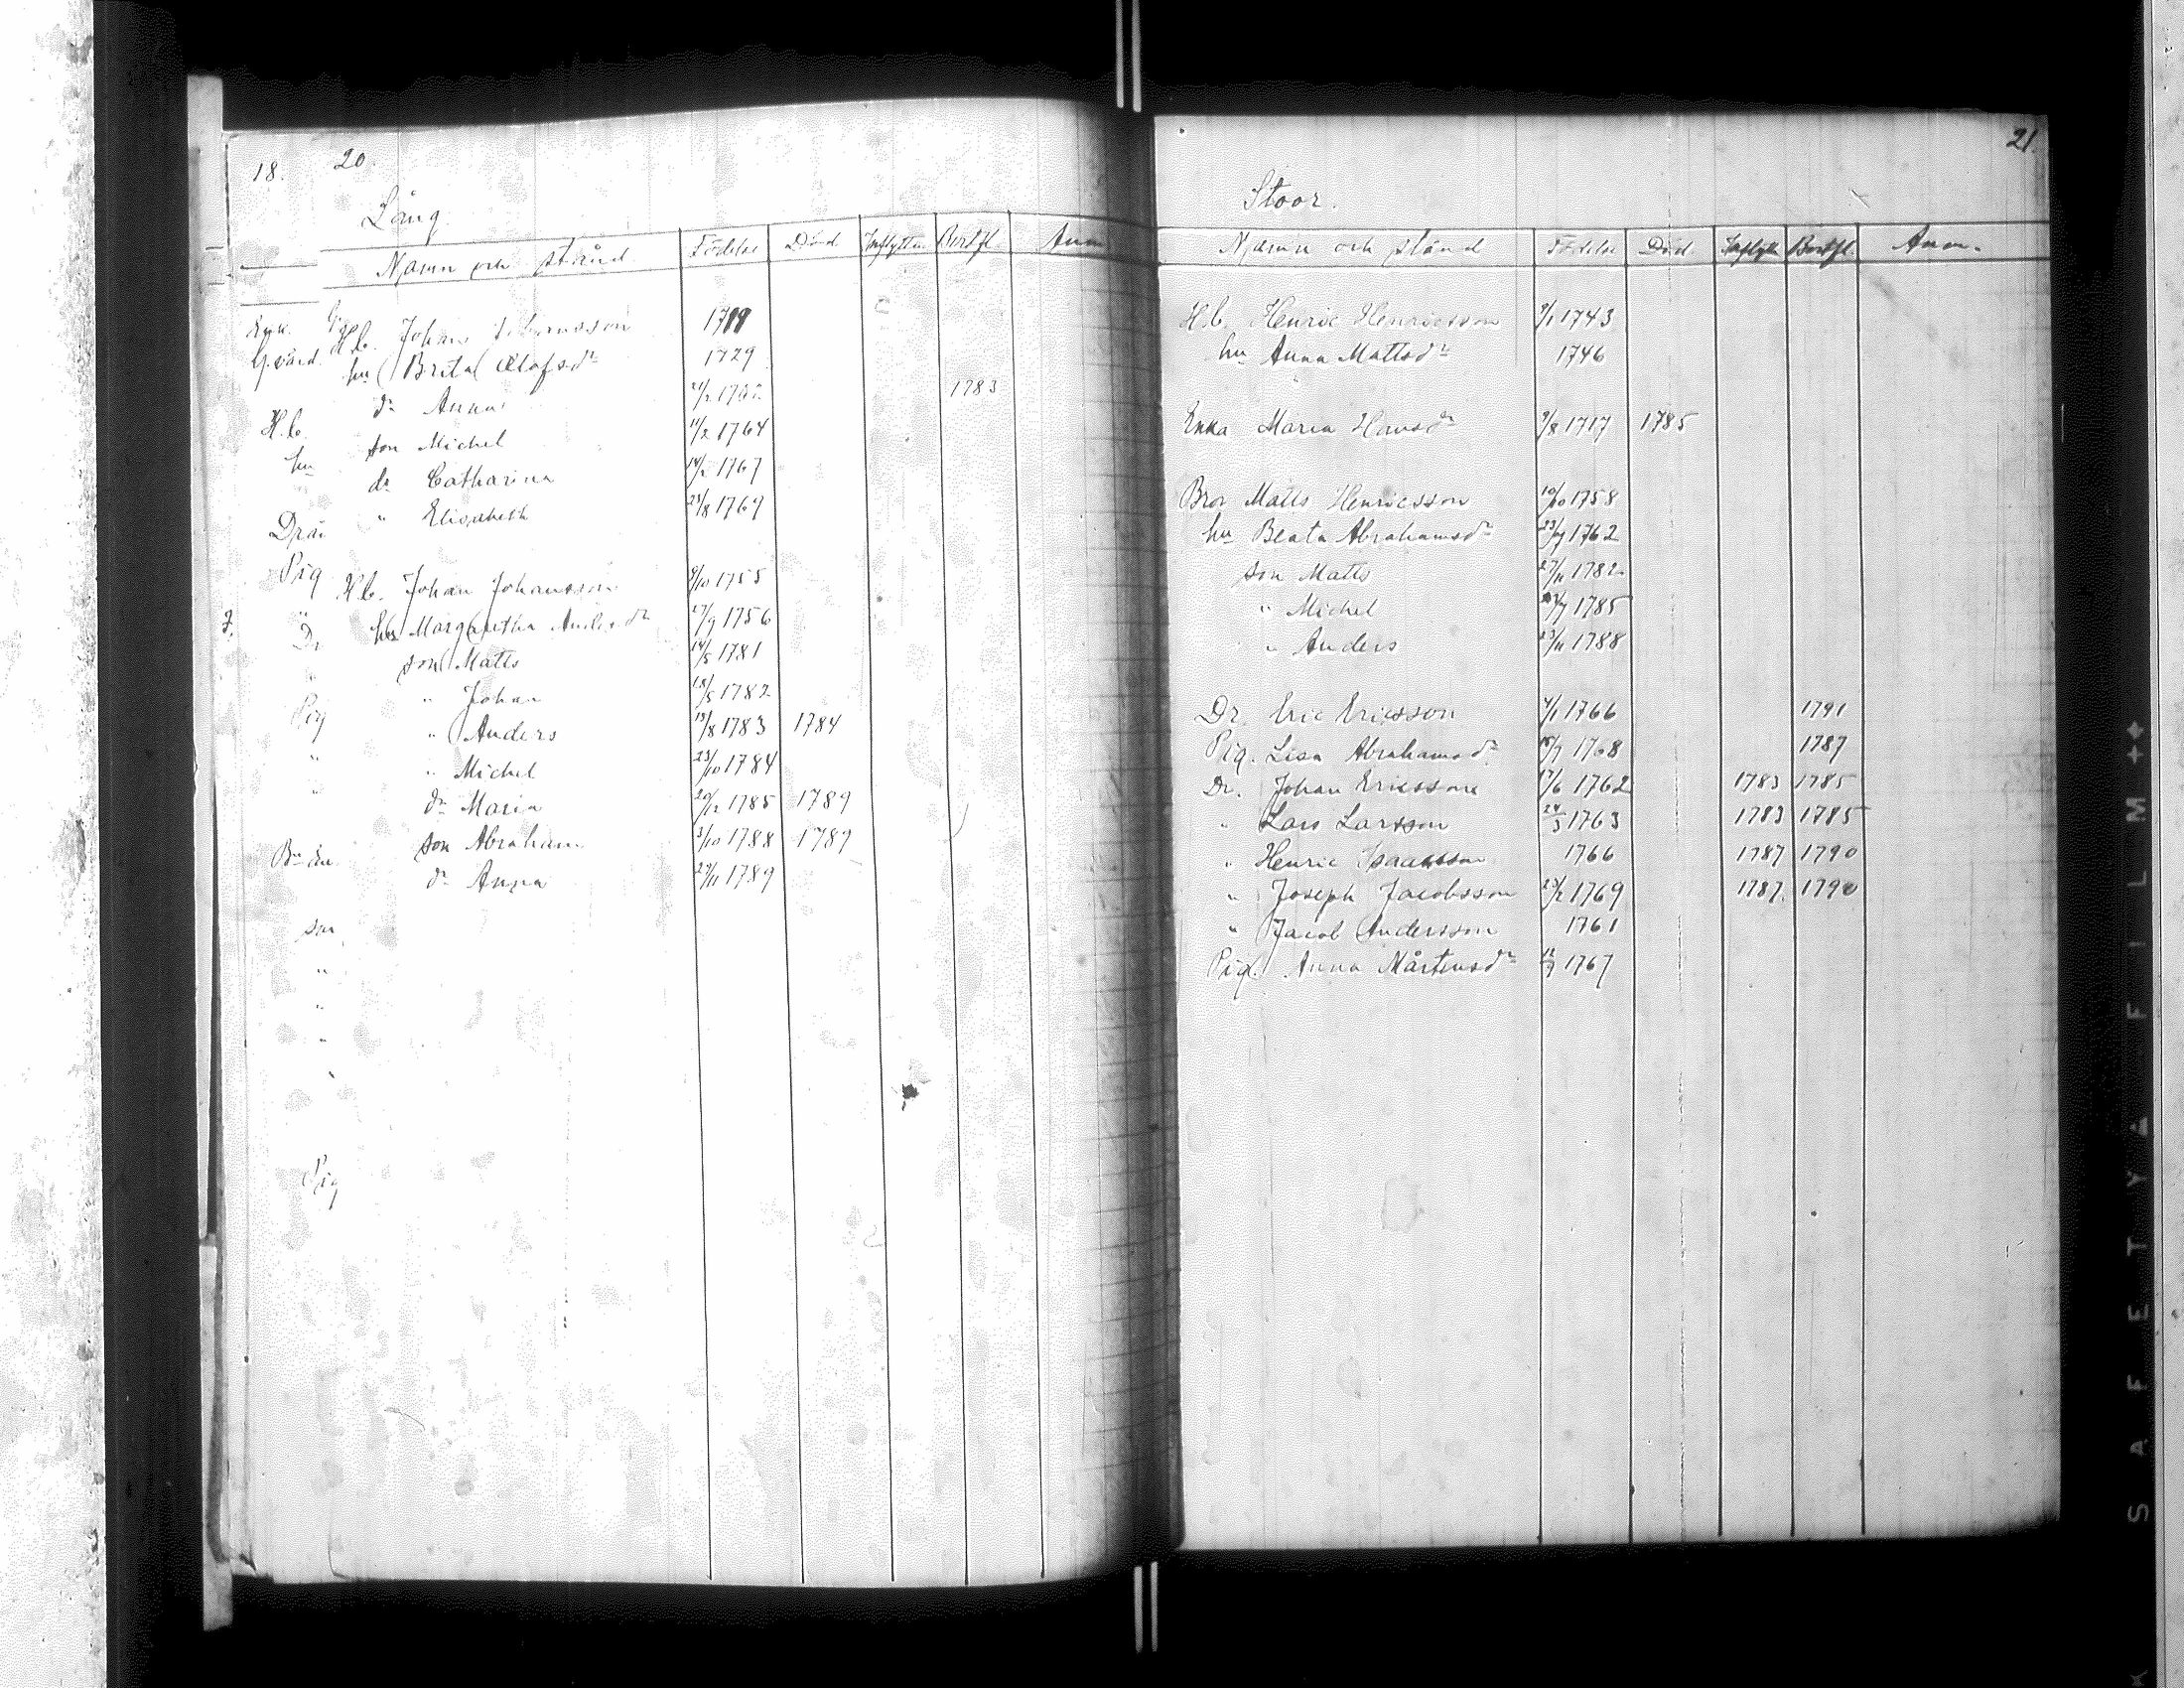 18. 20.
Lång
Namn och stånd Födelse Död Inflytt. Bortfl. Anm
Enk. H.b. Johan Johansson 1719
G. värd. hu Brita Olofsdr 1729
dr Anna 21/2 1783
H.b. son Michel 11/2 1764
hu dr Catharina 14/2 1767
" Elisabeth 23/8 1769
Drän
Pig H.b. Johan Johansson 9/10 1755
" hu Margaretha Andersdr 27/9 1756
Dr son Matts 14/5 1781
" " Johan 18/5 1782
Pig " Anders 13/8 1783 1784
" " Michel 23/10 1784
" dr Maria 20/12 1785 1789
son Abraham 3/10 1788 1789
dr Anna 29/11 1789
son
"
"
"
Pig
21.
Stoor.
Namn och stånd Födelse Död Inflytt Bortfl. Anm.
H.b. Henric Henricsson 9/1 1743
hu Anna Mattsdr 1746
Enka Maria Hansdr 9/8 1717 1785
Bror Matts Henricsson 10/10 1758
hu Beata Abrahamsdr 23/9 1762
son Matts 27/11 1782
" Michel /7 1785
" Anders 23/11 1788
Dr. Eric Ericsson 4/1 1766 1791
Pig. Lisa Abrahamsdr 15/7 1768 1787
Dr. Johan Ericsson 17/6 1762 1783 1785
" Lars Larsson 24/3 1763 1783 1785
" Henric Isacsson 1766 1787 1790
" Joseph Jacobsson 23/2 1769 1787. 1790
" Jacob Andersson 1761
Pig. Anna Mårtensdr 12/7 1767
SAFETY FILM